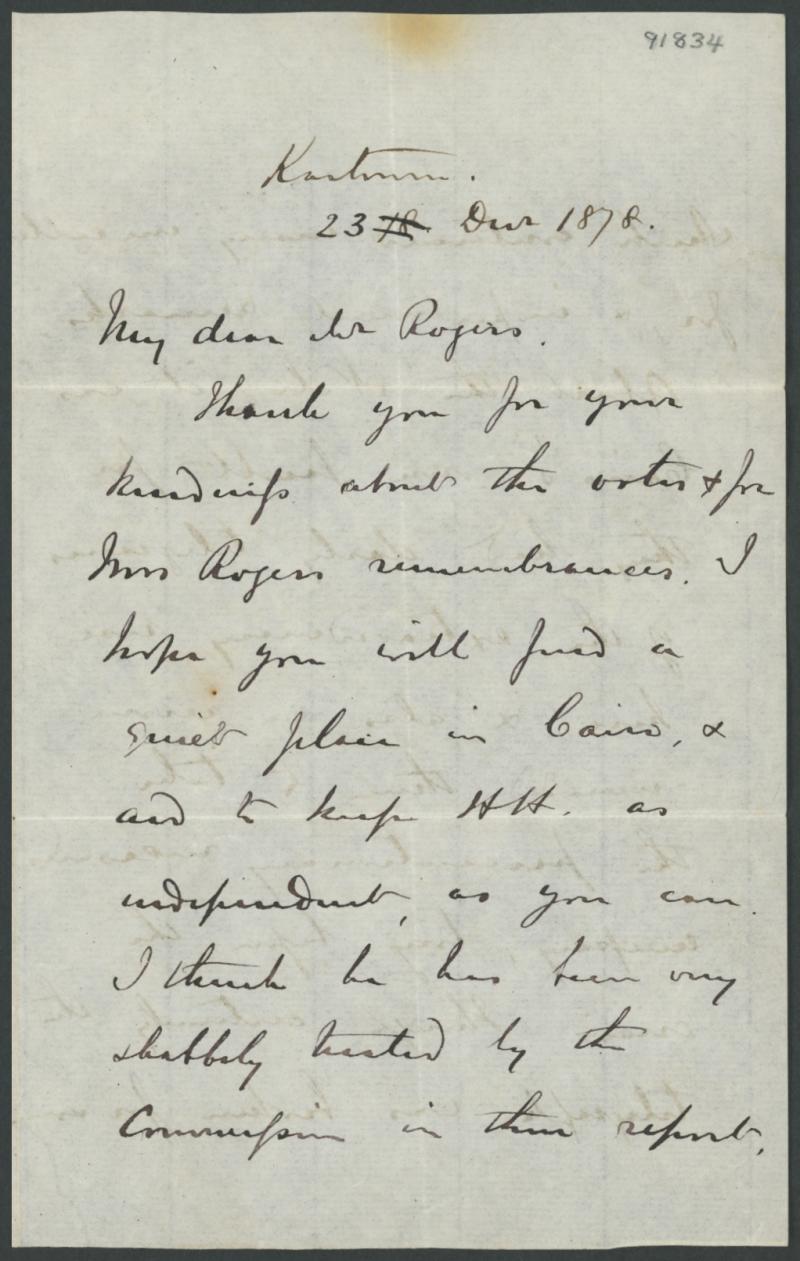 91834
Kartoum.
23 Decr 1878.
My dear Mr Rogers.
Thank you for your
kindness about the votes & for
Mrs Rogers remembrances. I
hope you will find a
quiet place in Cairo, &
aid to keep HH. as
independent, as you can.
I think he has been very
shabbily treated by the
Commission in their report,